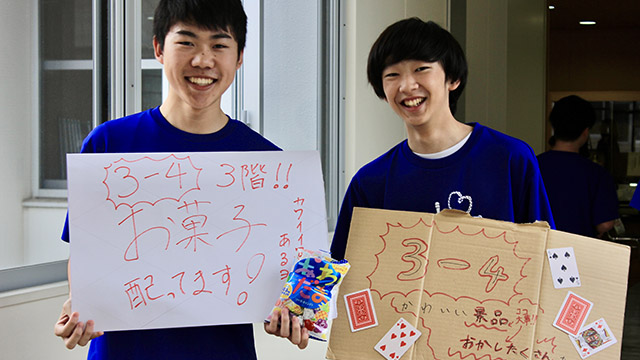 3-4 3階!!
お菓子
配ってます!
カワイイ
あるヨ
3-4
かわいい景品と
おかし